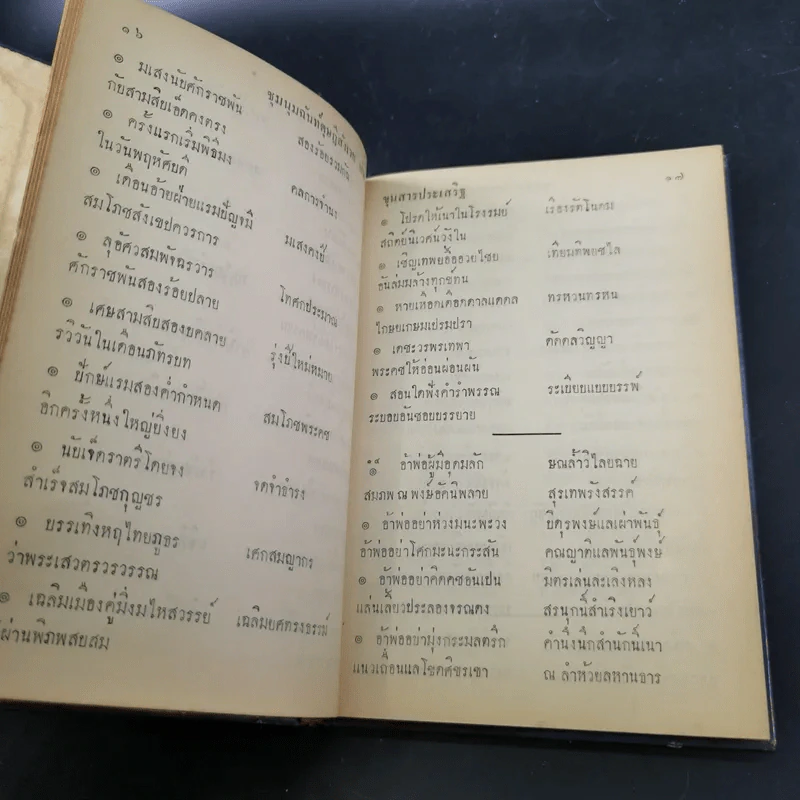 ๑๖
ชุมนุมฉันท์ดุษฎีสังเวย
๏ มเสงนัยศักราชพัน สองร้อยรวมกัน
กับสามสิบเอ็ดคงตรง
๏ ครั้งแรกเริ่มพิธีมง คลการจำนง
ในวันพฤหัศบดี
๏ เดือนอ้ายฝ่ายแรมปัญจมี มเสงคงปี
สมโภชสังเขปควรการ
๏ ลุอัศวสมพัจฉรวาร โทศกประมาณ
ศักราชพันสองร้อยปลาย
๏ เศษสามสิบสองบคลาย รุ่งปีใหม่หมาย
รวิวันในเดือนภัทรบท
๏ ปักษ์แรมสองค่ำกำหนด สมโภชพระคช
อีกครั้งหนึ่งใหญ่ยิ่งยง
๏ นับเจ็ดราตรีโดยจง จดจำธำรง
สำเร็จสมโภชกุญชร
๏ บรรเทิงหฤไทยภูธร เศกสมญากร
ว่าพระเสวตรวรวรรณ
๏ เฉลิมเมืองคู่มิ่งมไหสวรรย์ เฉลิมยศทรงธรรม์
ผ่านพิภพสยสม
๑๗
ขุนสารประเสริฐ
๏ โปรดให้นำในโรงรมย์ เรืองรัตโนดม
สถิตย์นิเวศน์วังใน
๏ เชิญเทพยอื้ออวยไชย เทียมทิพอชไล
อันล่มมล้างทุกข์ทน
๏ หายเหือดเดือดดาลแดดล ทรหวนทรหน
ไกษยเกษมเปรมปรา
๏ เดชะวรพรเทพา ดัดดลวิญญา
พระคชให้อ่อนผ่อนผัน
๏ สอนใดฟังคำรำพรรณ ระเบียบแบบบรรพ์
ระบอบอันชอบบรรยาย
๏ อ้าพ่อผู้มีอุดมลัก ษณล้ำวิไลยฉาย
สมภพ ณ พงษ์อัคนิพลาย สุรเทพรังสรรค์
๏ อ้าพ่ออย่าห่วงมนะพะวง ปิตุรพงษ์แลเผ่าพันธุ์
อ้าพ่ออย่าโศกมะนะกระสัน คณญาติแลพันธุ์พงษ์
๏ อ้าพ่ออย่าคิดคชอันเปน มิตรเล่นละเลิงหลง
แล่นเลี้ยวประลองจรณดง สรนุกนิ์สำเริงเยาว์
๏ อ้าพ่ออย่ามุ่งกระมลตริก คำนึงนึกสำนักนิ์เนา
แนวเถื่อนแลโขดศิขรเขา ณ ลำห้วยลหานธาร